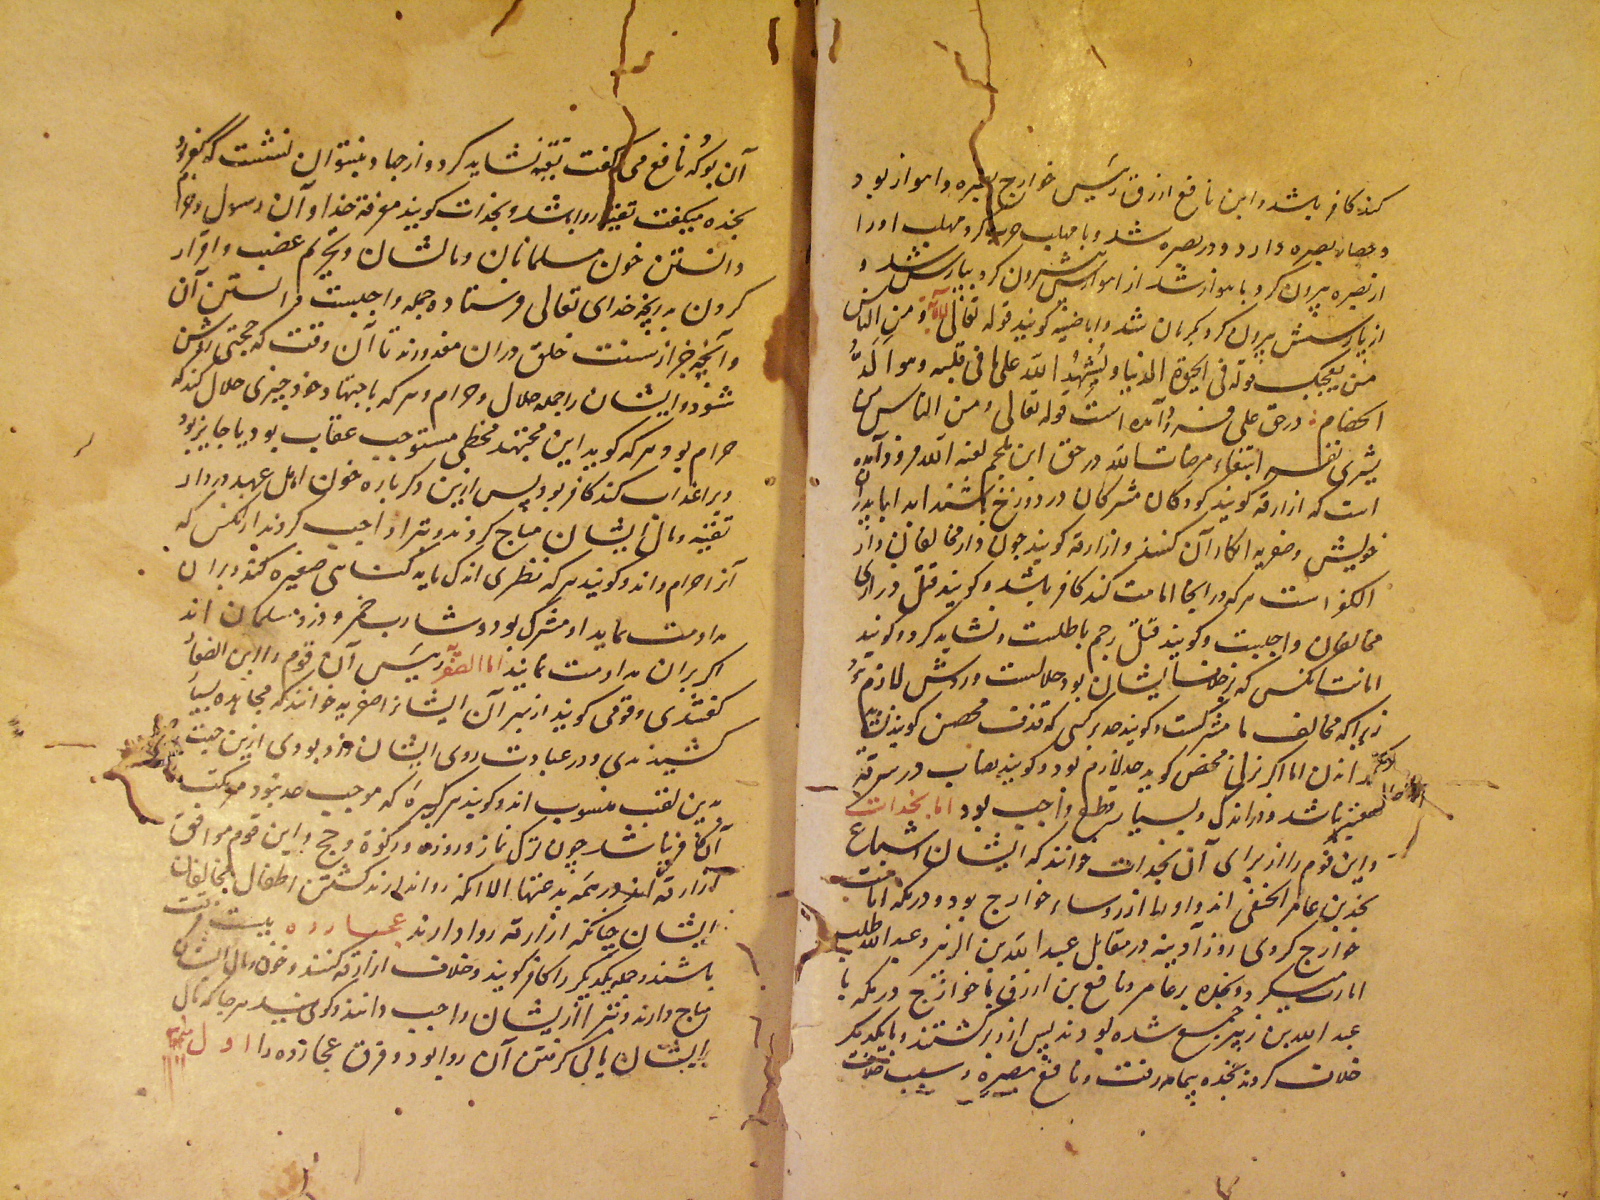 کند کافر باشد و این نافع ازرق رئیس خوارج بصره و اهواز بود
و بصره دارد و در بصره شد و با مهلب حرب کرد مهلب او را
از بصره بیرون کرد باهواز شد از اهوازش بیرون کرد بپارس شد و
از پارسش بیرون کرد بکرمان شد و اباضیه گویند قوله تعالی الآیة و من الناس
من یعجبک قوله فی الحیوة الدنیا و یشهد الله علی ما فی قلبه و هو الد
الخصام در حق علی آمده است قوله تعالی و من الناس من
یشری نفسه ابتغاء مرضات الله در حق ابن ملجم لعنه الله فرود آمده
است که ازارقه گویند کودکان مشرکان در دوزخ باشند با پدران
خویش و صفریه انکار آن کنند و ازارقه گویند چون دار مخالفان دار
الکفر است هر که در اینجا اقامت کند کافر باشد و گویند قتل ذراری
مخالفان واجبست و گویند قتل رجم باطلست و نشاید کرد و گویند
امانت انکس که بخلاف ایشان بود حلالست و ردش لازم نه
زیرا که مخالف ما مشرکست و گویند حد بر کسی که قذف محصن گوید
اما اگر زنی محصن گوید حد لازم بود و گویند نصاب در سرقه
معتبر باشد و در اندک و بسیار قطع واجب بود اما نجدات
و این قوم را از برای آن نجدات خوانند که ایشان اشیاع
نجدة بن عامر الحنفی اند و او از روساء خوارج بود و در مکه امامت
خوارج کردی روز آدینه در مقابل عبد الله بن الزبیر و عبد الله طلب
امارت میکرد و نجده بن عامر و نافع بن ازرق با خوارج در مکه با
عبد الله بن زبیر جمع شده بودند پس ازو برگشتند و با یکدیگر
خلاف کردند نجده بیمامه رفت و نافع ببصره و سبب خلاف
آن بود که نافع می گفت تقیه نشاید کرد و از جهاد بنتوان نشست که کفر بود
نجده میگفت تقیه روا باشد و نجدات گویند معرفة خدا و آن رسول و حرام
دانستن خون مسلمانان و مالشان و تحریم غصب و اقرار
کردن بدانچه خدای تعالی فرستاده جمله واجبست و دانستن آن
و آنچه جز ازینست خلق دران معذورند تا آن وقت که حجتی روشن
شود و ایشان را جمله حلال و حرام و هر که باجتهاد خود چیزی حلال کند که
حرام بود و هر که گوید این مجتهد مخطی مستوجب عقاب بود یا جایز بود
ویرا عذاب کند کافر بود پس ازین دگرباره خون اهل عهد در دار
تقیه و مال ایشان مباح کردند و تبرا واجب کردند از کس که
آنرا حرام داند و گویند هر که نظری اندک یا گناهی صغیره کند و بران
مداومت نماید او مشرک بود و شارب خمر و دزد مسلمان اند
اگر بران مداومت نمایند اما الصفریه رئیس آن قوم را ابن الصفار
گفتندی و قومی گویند از بهر آن ایشانرا صفریه خوانند که مجاهده بسیار
کشیدندی و در عبادت روی ایشان زرد بودی ازین جهت
بدین لقب منسوب اند و گویند هر کبیره که موجب حد بود مرتکب
آن کافر نباشد چون ترک نماز و روزه و زکوة و حج و این قوم موافق
ازارقه اند در همه بدعتها الا انکه روا ندارند کشتن اطفال مخالفان
ایشان چنانکه ازارقه روا دارند عجارده بیست فرقت
باشند و جمله یکدیگر را کافر گویند و خلاف ازارقه کنند و خون و مال ایشان
مباح دارند و تبرا ازیشان واجب دانند و گویند هر جا که مال
ایشان یابی گرفتن آن روا بود و فرق عجارده را اول